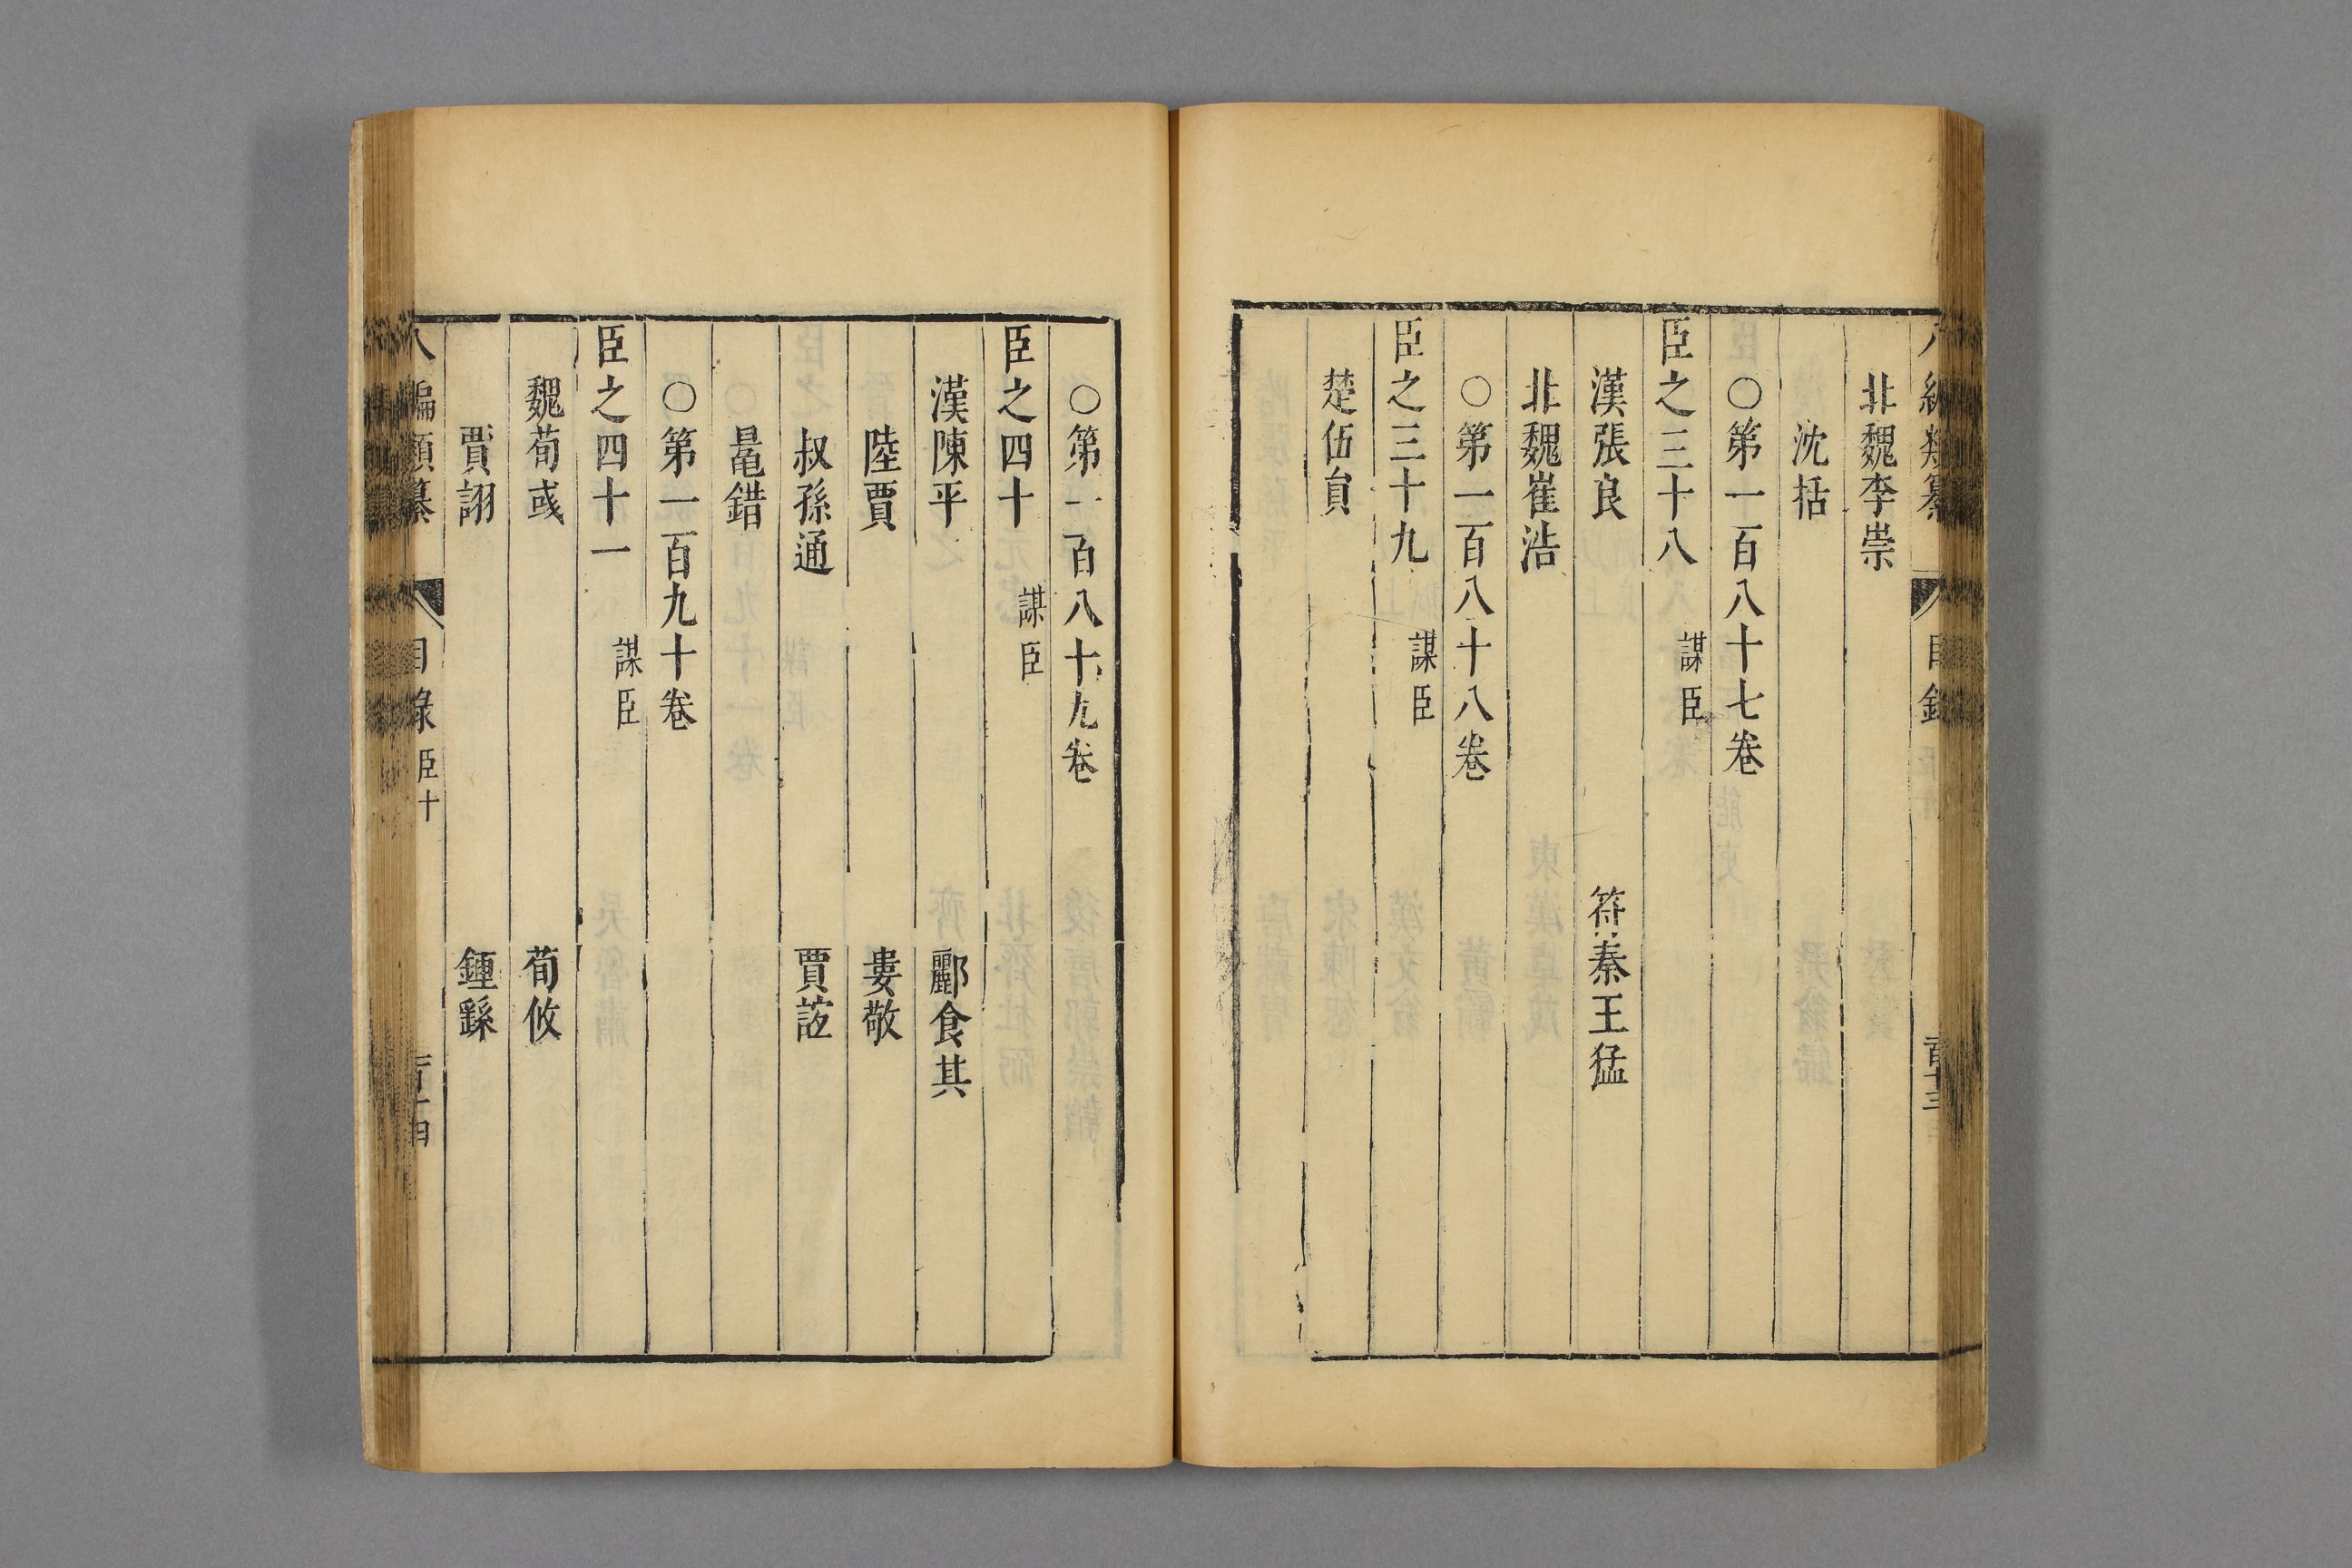 北魏李崇
沈括
○第一百八十七卷
臣之三十八 謀臣
漢張良 符秦王猛
北魏崔浩
○第一百八十八卷
臣之三十九 謀臣
楚伍員
○第一百八十九卷
臣之四十 謀臣
漢陳平 酈食其
陸賈 婁敬
叔孫通 賈誼
鼂錯
○第一百九十卷
臣之四十一 謀臣
魏荀彧 荀攸
賈詡 鍾繇
八編類纂 目錄 臣十